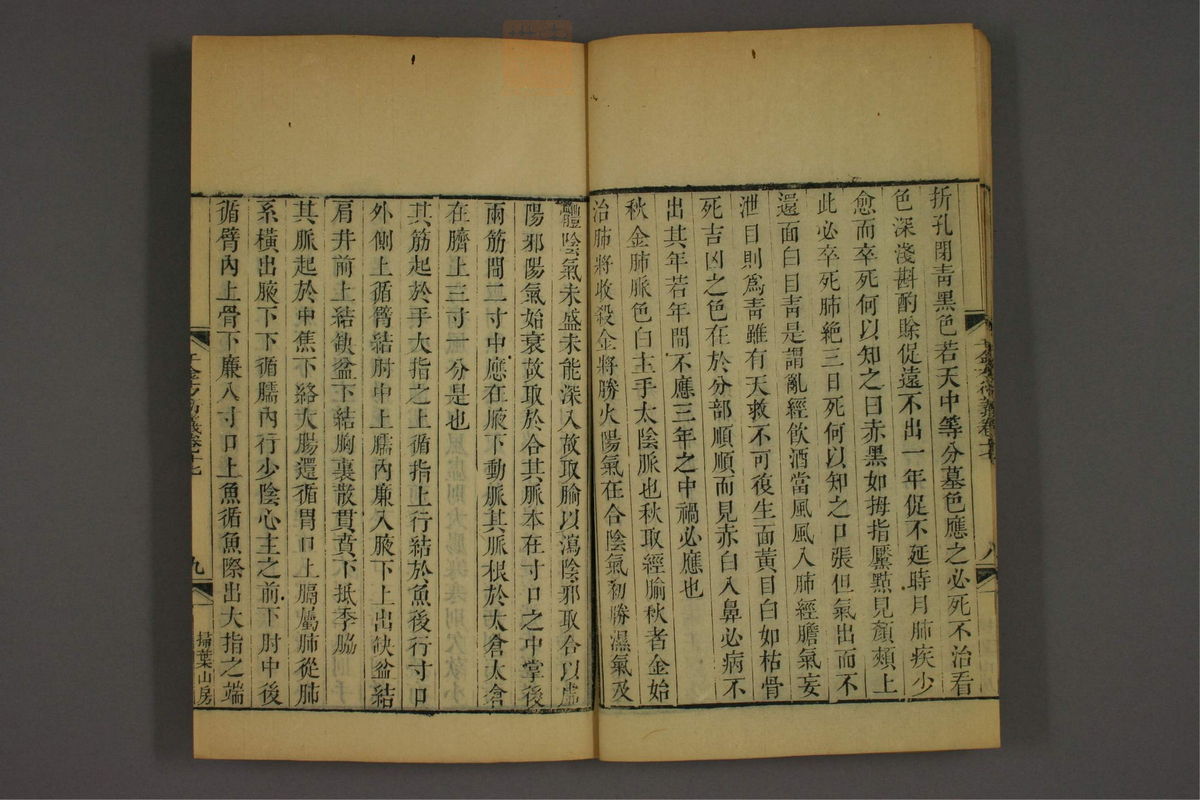 折孔閉靑黑色若天中等分墓色應之必死不治看
色深淺斟酌賒促遠不出一年促不延時月肺疾少
愈而卒死何以知之曰赤黑如拇指黶㸃見顏頰上
此必卒死肺絕三日死何以知之口張但氣出而不
還面白目靑是謂亂經飮酒當風風入肺經膽氣妄
泄目則爲靑雖有天救不可復生面黃目白如枯骨
死吉凶之色在於分部順順而見赤白入鼻必病不
出其年若年間不應三年之中禍必應也
秋金肺脈色白主手太陰脈也秋取經腧秋者金始
治肺將收殺金將勝火陽氣在合陰氣初勝濕氣及
體陰氣未盛未能深入故取腧以瀉陰邪取合以虛
陽邪陽氣始衰故取於合其脈本在寸口之中掌後
兩筋間二寸中應在腋下動脈其脈根於太倉太倉
在臍上三寸一分是也
其筋起於手大指之上循指上行結於魚後行寸口
外側上循臂結肘中上臑內廉入腋下上出缺盆結
肩井前上結缺盆下結胸裏散貫賁下抵季脇
其脈起於中焦下絡大腸還循胃口上膈屬肺從肺
系橫出腋下下循臑內行少陰心主之前下肘中後
循臂內上骨下廉入寸口上魚循魚際出大指之端
千金方衍義卷十七
八
九
掃葉山房